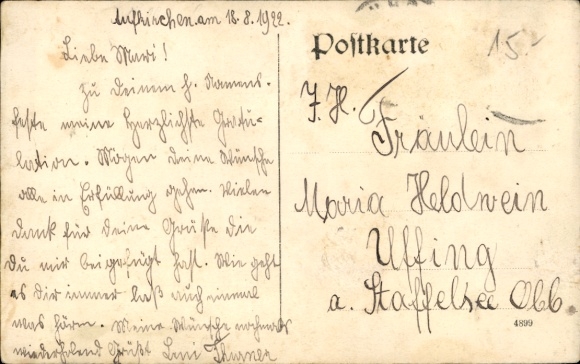 Aufkirchen. am 18.8.1922.
Liebe Mari!
Zu Deinem h. Namens-
feste meine herzlichste Gratu-
lation. Mögen deine Wünsche
alle in Erfüllung gehen. Vielen
Dank für deine Grüße die
Du mir beigefügt hast. Wie geht
es dir immer laß auch einmal
was hören. Meine Wünsche nochmals
wiederholend Grüßt Leni
Postkarte
15.-
Fräulein
Maria Heldwein
Uffing
a. Staffelsee Obb
4899